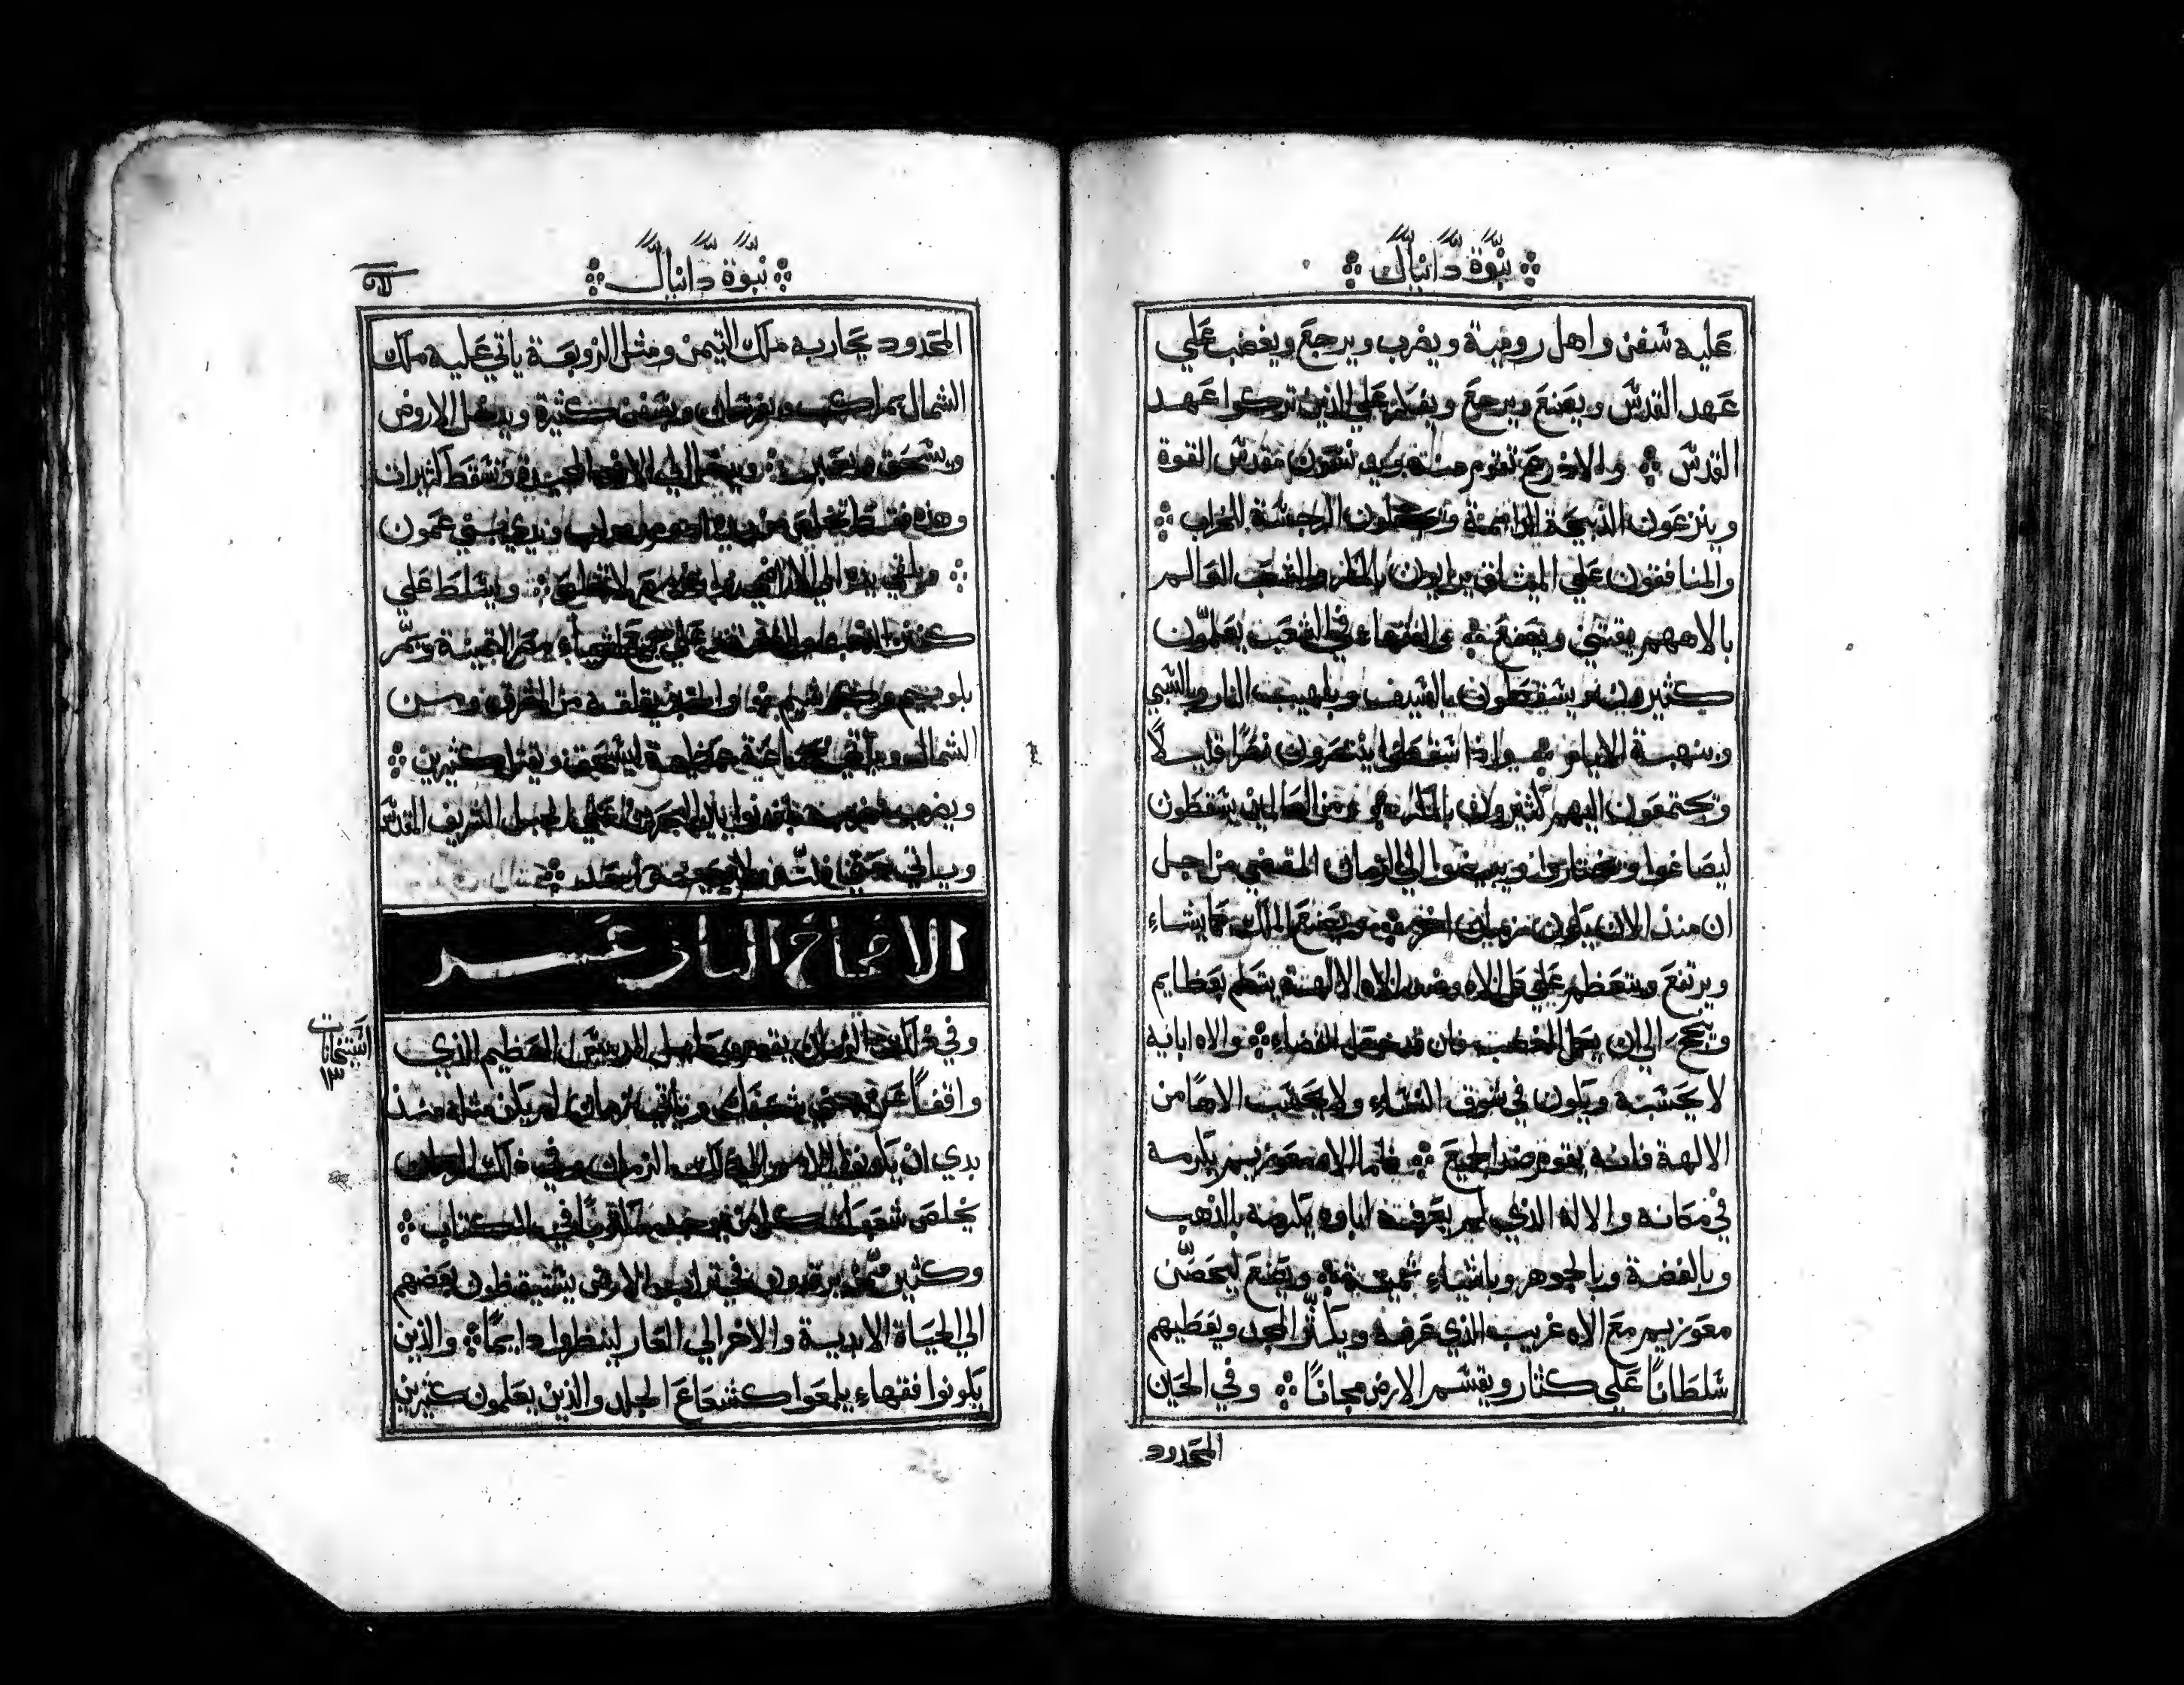 نبوة دانيال
عليه سفن واهل رومية ويضرب ويرجع ويغضب علي
عهد القدس ويصنع ويرجع ويفتكر علي الذين تركوا عهد
القدس والادرع تقوم منه وينجسون مقدس القوة
وينزعون الذبيحة الدايمة ويجعلون الرجسة للخراب
والمنافقون علي الميثاق يرايون بالمكر والشعب العالم
بالاههم يقتني ويصنع والفقها في الشعب يعلمون
كثيرين ويسقطون بالسيف وبلهيب النار وبالسبي
وبنهبة الايام واذا سقطوا ينتصرون نصرًا قليلًا
ويجتمعون اليهم كثيرون بالمكر ومن العالمين يسقطون
ليصاغوا ويختاروا ويبيضوا الي الزمان المقضي من اجل
ان منذ الان يكون زمان اخر ويصنع الملك كما يشاء
ويرتفع ويتعظم علي كل الاه وضد الاه الالهة يتكلم بعظايم
وينجح الي ان يكمل الغضب فان قد كمل القضاء والاه ابايه
لا يحسبه ويكون في شوق النساء ولا يحسب الاهًا من
الالهة فانه يقوم ضد الجميع فاما الاه معوزيم يكرمه
في مكانه والاله الذي لم يعرفه اباوه يكرمه بالذهب
وبالفضة وبالجوهر وباشياء ثمينة ويصنع ليحصن
معوزيم مع الاه غريب الذي عرفه ويكثر المجد ويعطيهم
سلطانًا علي كثار ويقسم الارض مجانًا وفي الحين
المحدود
نبوة دانيال
المحدود يحاربه ملك التيمن ومثل الزوبعة ياتي عليه ملك
الشمال بمراكب وبفرسان وبسفن كثيرة ويدخل الاروض
ويسحق ويعبر ويدخل الي الارض المجيدة وتسقط كثيرات
وهذه فقط تخلص من يده ادوم ومواب وبدي بني عمون
ويلقي يده الي الاراضي وارض مصر لا تخلص ويتسلط علي
كنوز الذهب والفضة وعلي جميع اشياء مصر الثمينة ويمر
الشمال وياتي بجماعة عظيمة ليسحق ويقتل كثيرين
الاصحاح الثاني عشر
وفي ذلك الزمان يقوم ميخاييل الرييس العظيم الذي
واقفًا عن بني شعبك وياتي زمان لم يكن مثله منذ
بدي ان يكونوا الامم الي ذلك الزمان وفي ذلك الزمان
يخلص شعبك كل من يوجد مكتوبًا في الكتاب
وكثير ممن يرقدون في تراب الارض يستيقظون بعضهم
الي الحياة الابدية والاخر الي العار لينظروا دايمًا والذين
يكونوا فقهاء يلمعوا كشعاع الجلد والذين يعلمون كثيرين